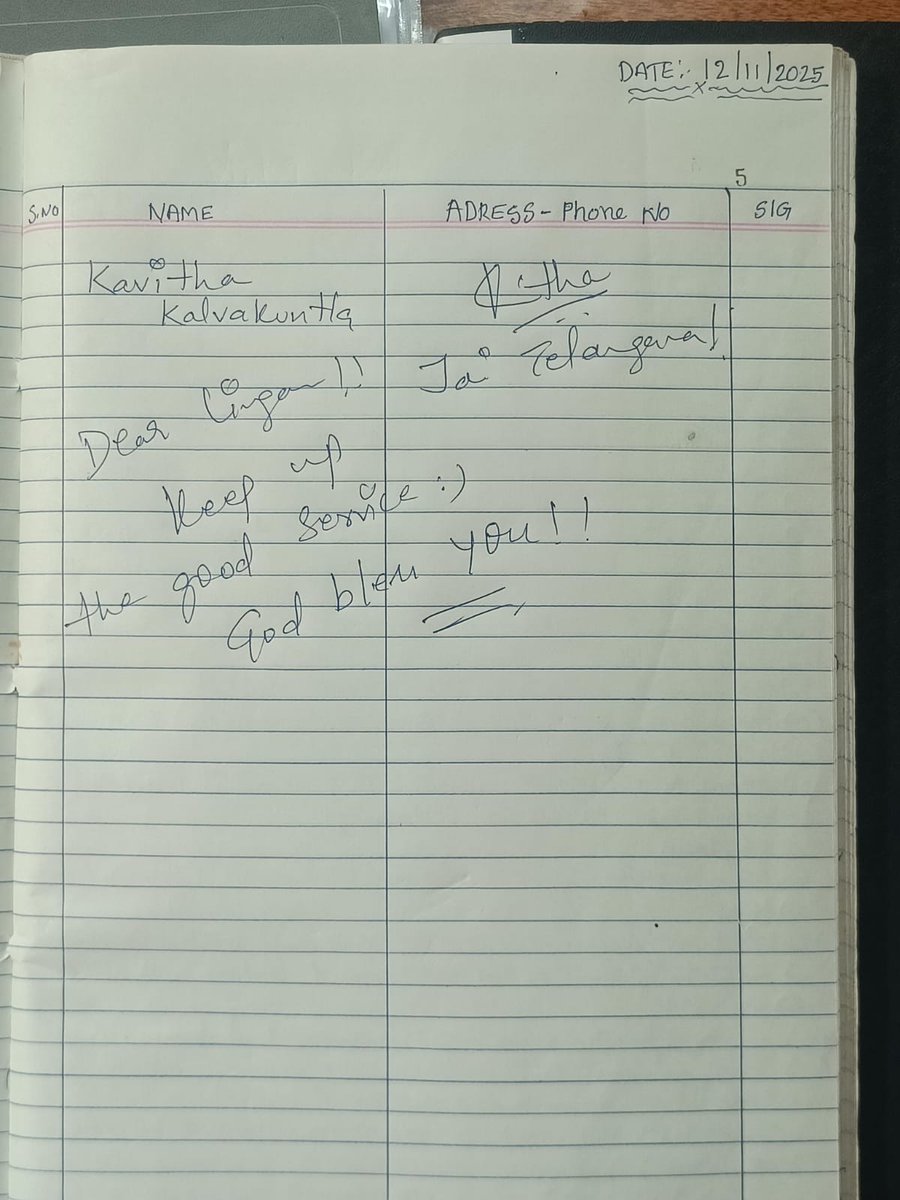 DATE:- 12/11/2025
5
S.NO NAME ADRESS - Phone NO SIG
Kavitha
Kalvakuntla
Jai Telangana!
Dear Lingan!!
Keep up
the good service :)
God bless you!!